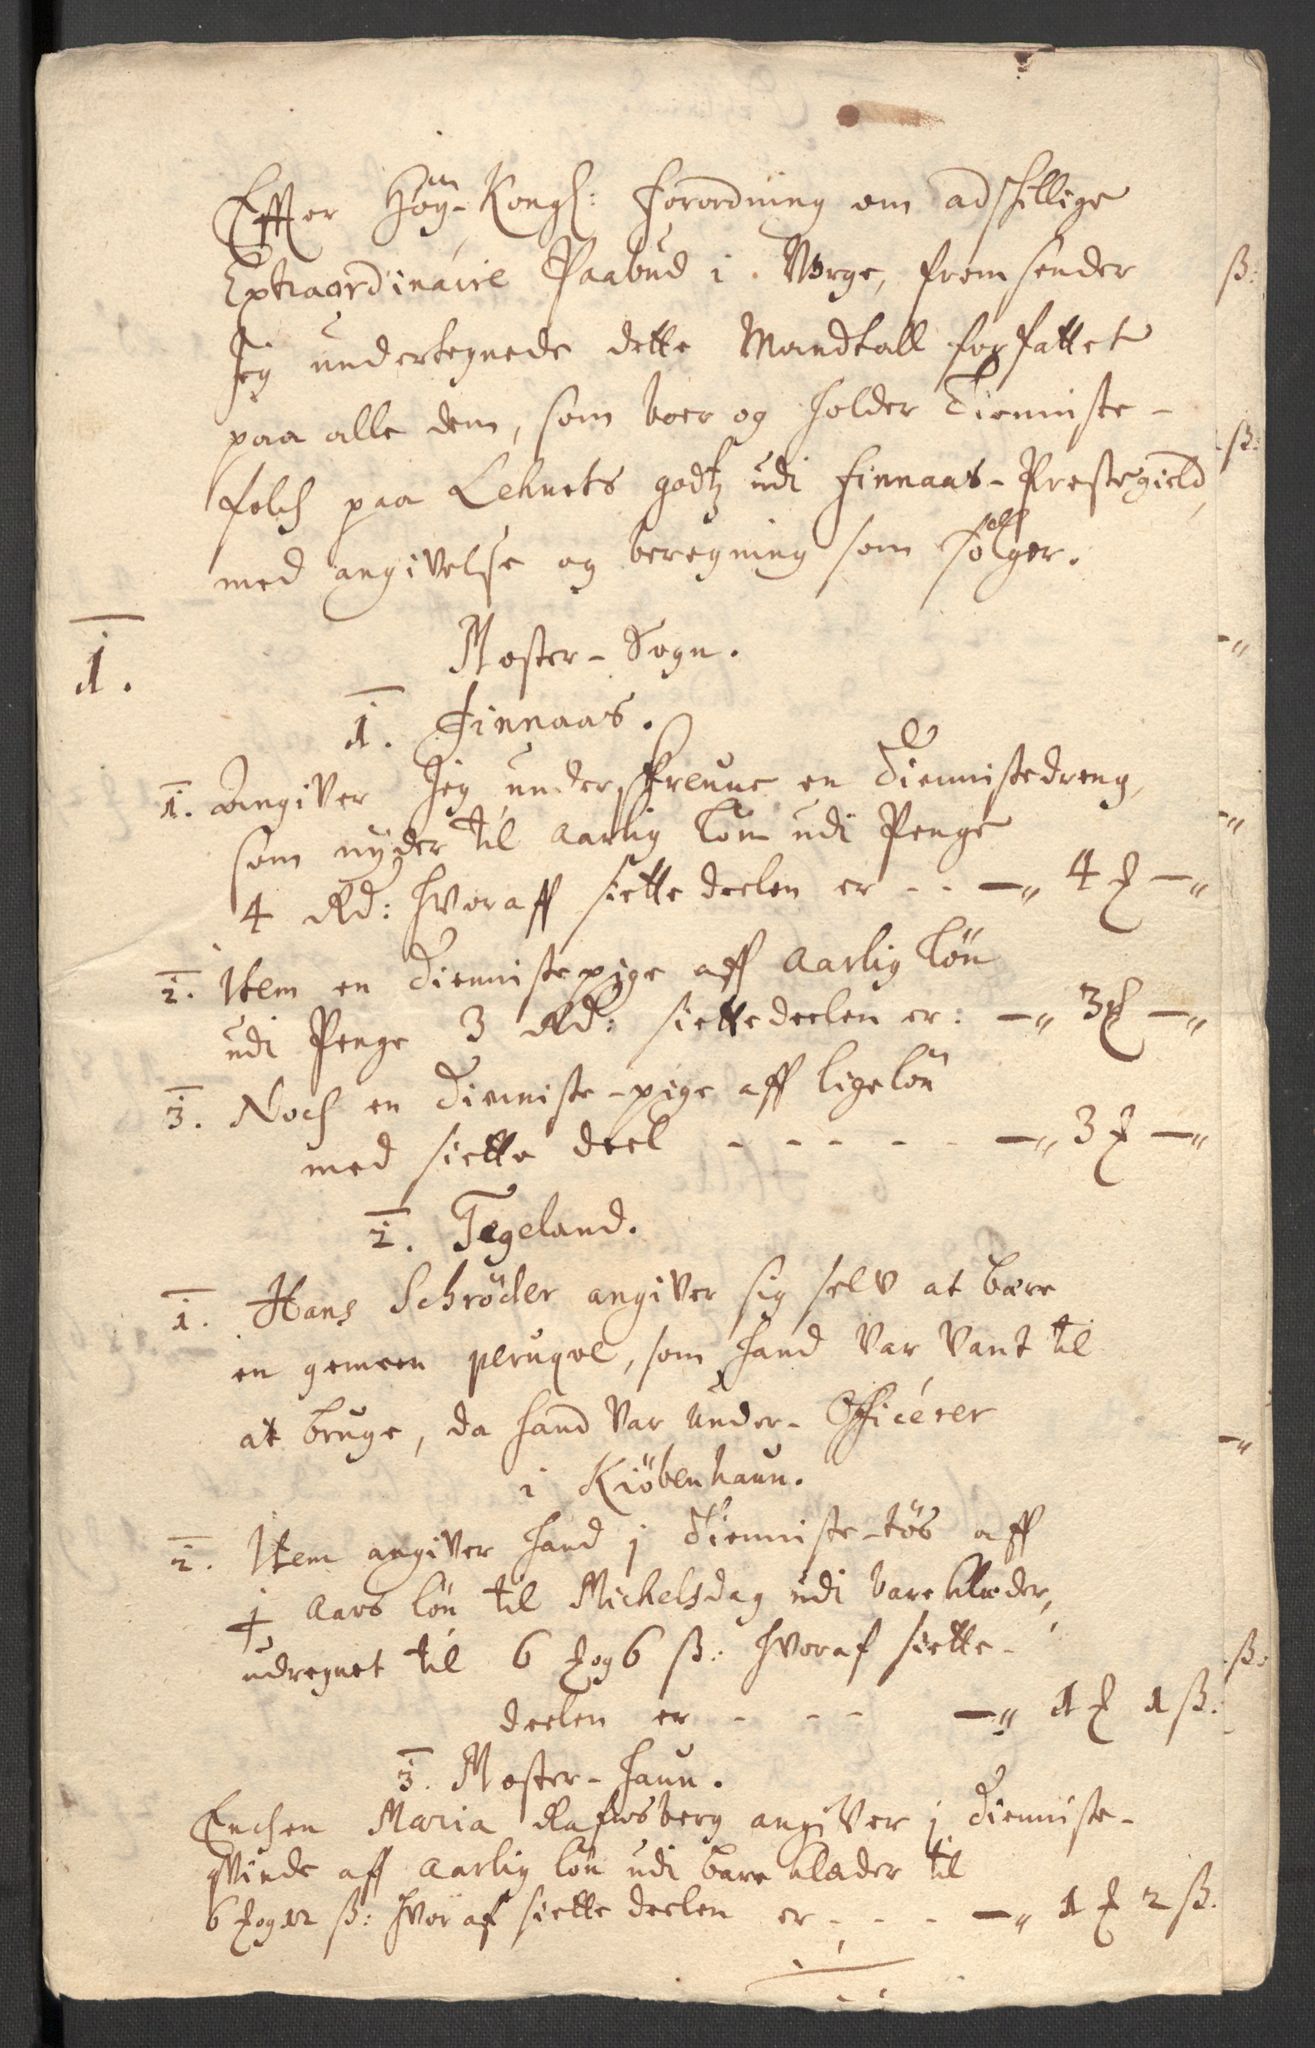 Effter Høy-Kongl: Forordning om adskillige
Extraordinaire Paabud i Norge, fremsender
Jeg undertegnede dette Mandtall forfattet
paa alle dem, som boer og holder Tienniste-
folch paa Lehnets godtz udi Finnaas-Prestegield,
med angivelse og beregning som følger.
1.
Moster-Sogn.
1. Finnaas.
1. Angiver Jeg underskreune en Tiennistedreng,
som nyder til Aarlig løn udi Penge
4 Rd: hvoraff siette deelen er - - —„ 4 ₰ —„
2. Item en Tiennistepige aff Aarlig løn
udi Penge 3 Rd: siettedeelen er: —„ 3 ₰ —„
3. Noch en Tienniste-pige aff lige løn
med siette deel - - - - - —„ 3 ₰ —„
2. Tegeland.
1. Hans Schrøder angiver sig selv at bære
en gemeen peruqve, som hand var vant til
at bruge, da hand var Under-Officérer
i Kiøbenhaun.
2. Item angiver hand j Tienniste-tøs aff
Aars løn til Michelsdag udi bare klæder,
udregnet til 6 ₰ og 6 ß: hvoraf siette-
deelen er - - - —„ 1 ₰ 1 ß:
3. Moster-haun.
Enchen Maria angiver j Tienniste-
qvinde aff Aarlig løn udi bare klæder til
6 ₰ og 12 ß: hvoraf siette deelen er - - - —„ 1 ₰ 2 ß.